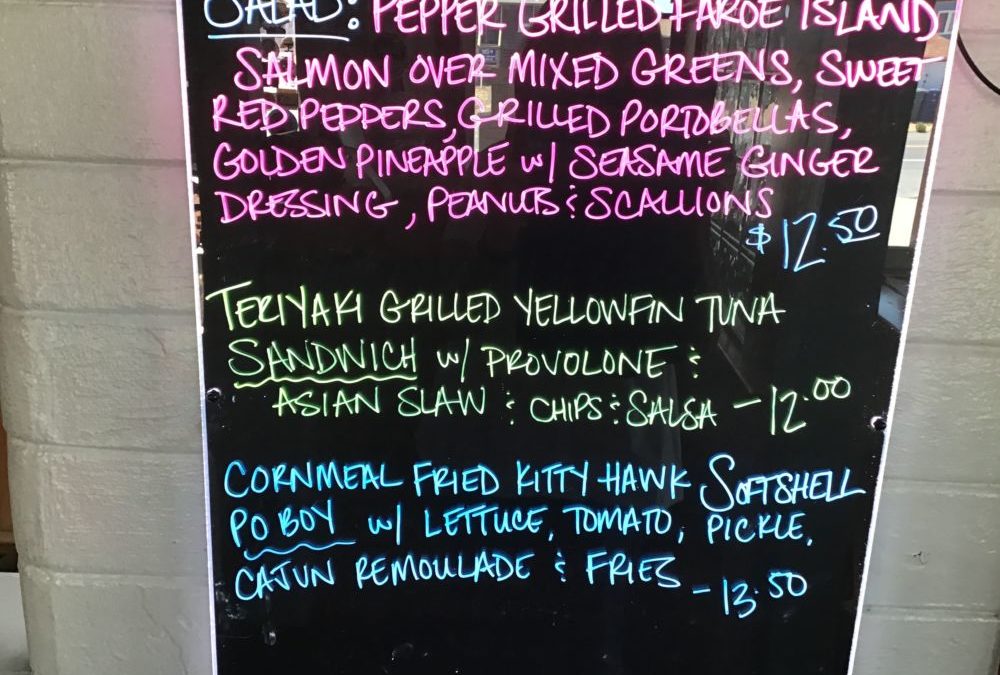 SALAD: PEPPER GRILLED FAROE ISLAND
SALMON OVER MIXED GREENS, SWEET
RED PEPPERS, GRILLED PORTOBELLAS,
GOLDEN PINEAPPLE w/ SEASAME GINGER
DRESSING, PEANUTS & SCALLIONS
$12.50
TERIYAKI GRILLED YELLOWFIN TUNA
SANDWICH w/ PROVOLONE &
ASIAN SLAW & CHIPS & SALSA -12.00
CORNMEAL FRIED KITTY HAWK SOFTSHELL
PO BOY w/ LETTUCE, TOMATO, PICKLE,
CAJUN REMOULADE & FRIES -13.50